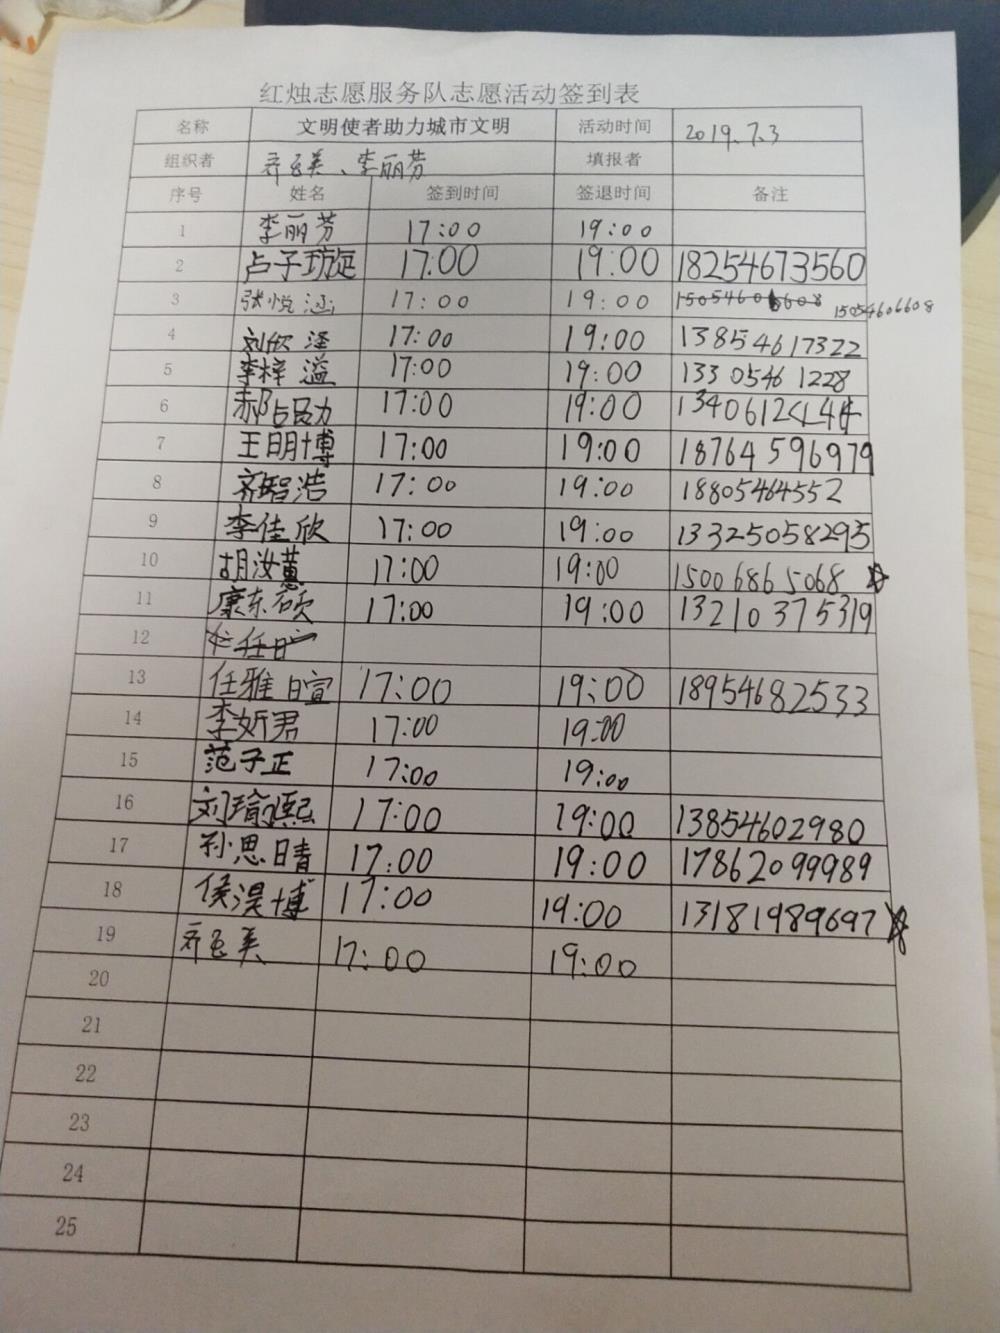 红烛志愿服务队志愿活动签到表
名称 文明使者助力城市文明 活动时间 2019.7.3
组织者 齐玉美、李丽芳 填报者
序号 姓名 签到时间 签退时间 备注
1 李丽芳 17:00 19:00
2 卢子 17:00 19:00 18254673560
3 张悦涵 17:00 19:00 15054606608
4 刘欣泽 17:00 19:00 13854617322
5 李梓溢 17:00 19:00 13305461228
6 17:00 19:00
7 王明博 17:00 19:00 18764596979
8 齐智浩 17:00 19:00 18805464552
9 李佳欣 17:00 19:00 13325058295
10 胡汝蕙 17:00 19:00 15006865068
11 康东硕 17:00 19:00 13210375319
12
13 任雅暄 17:00 19:00 18954682533
14 李妡君 17:00 19:00
15 范子正 17:00 19:00
16 刘瑜熙 17:00 19:00 13854602980
17 孙思晴 17:00 19:00 17862099989
18 侯淏博 17:00 19:00 13181989697
19 齐玉美 17:00 19:00
20
21
22
23
24
25